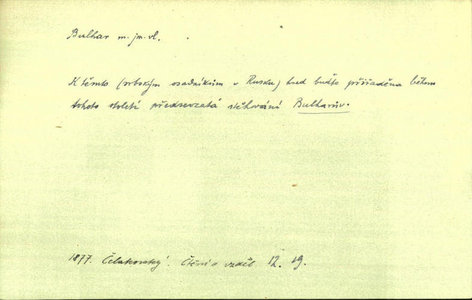 Bulhar m. jm. vl.
K těmto (srbským osadníkům v Rusku) buď přiřaděna během
tohoto století předsevzatá stěhování Bulharův.
1877. Čelakovský. Čtení o vzděl. 12. 19.